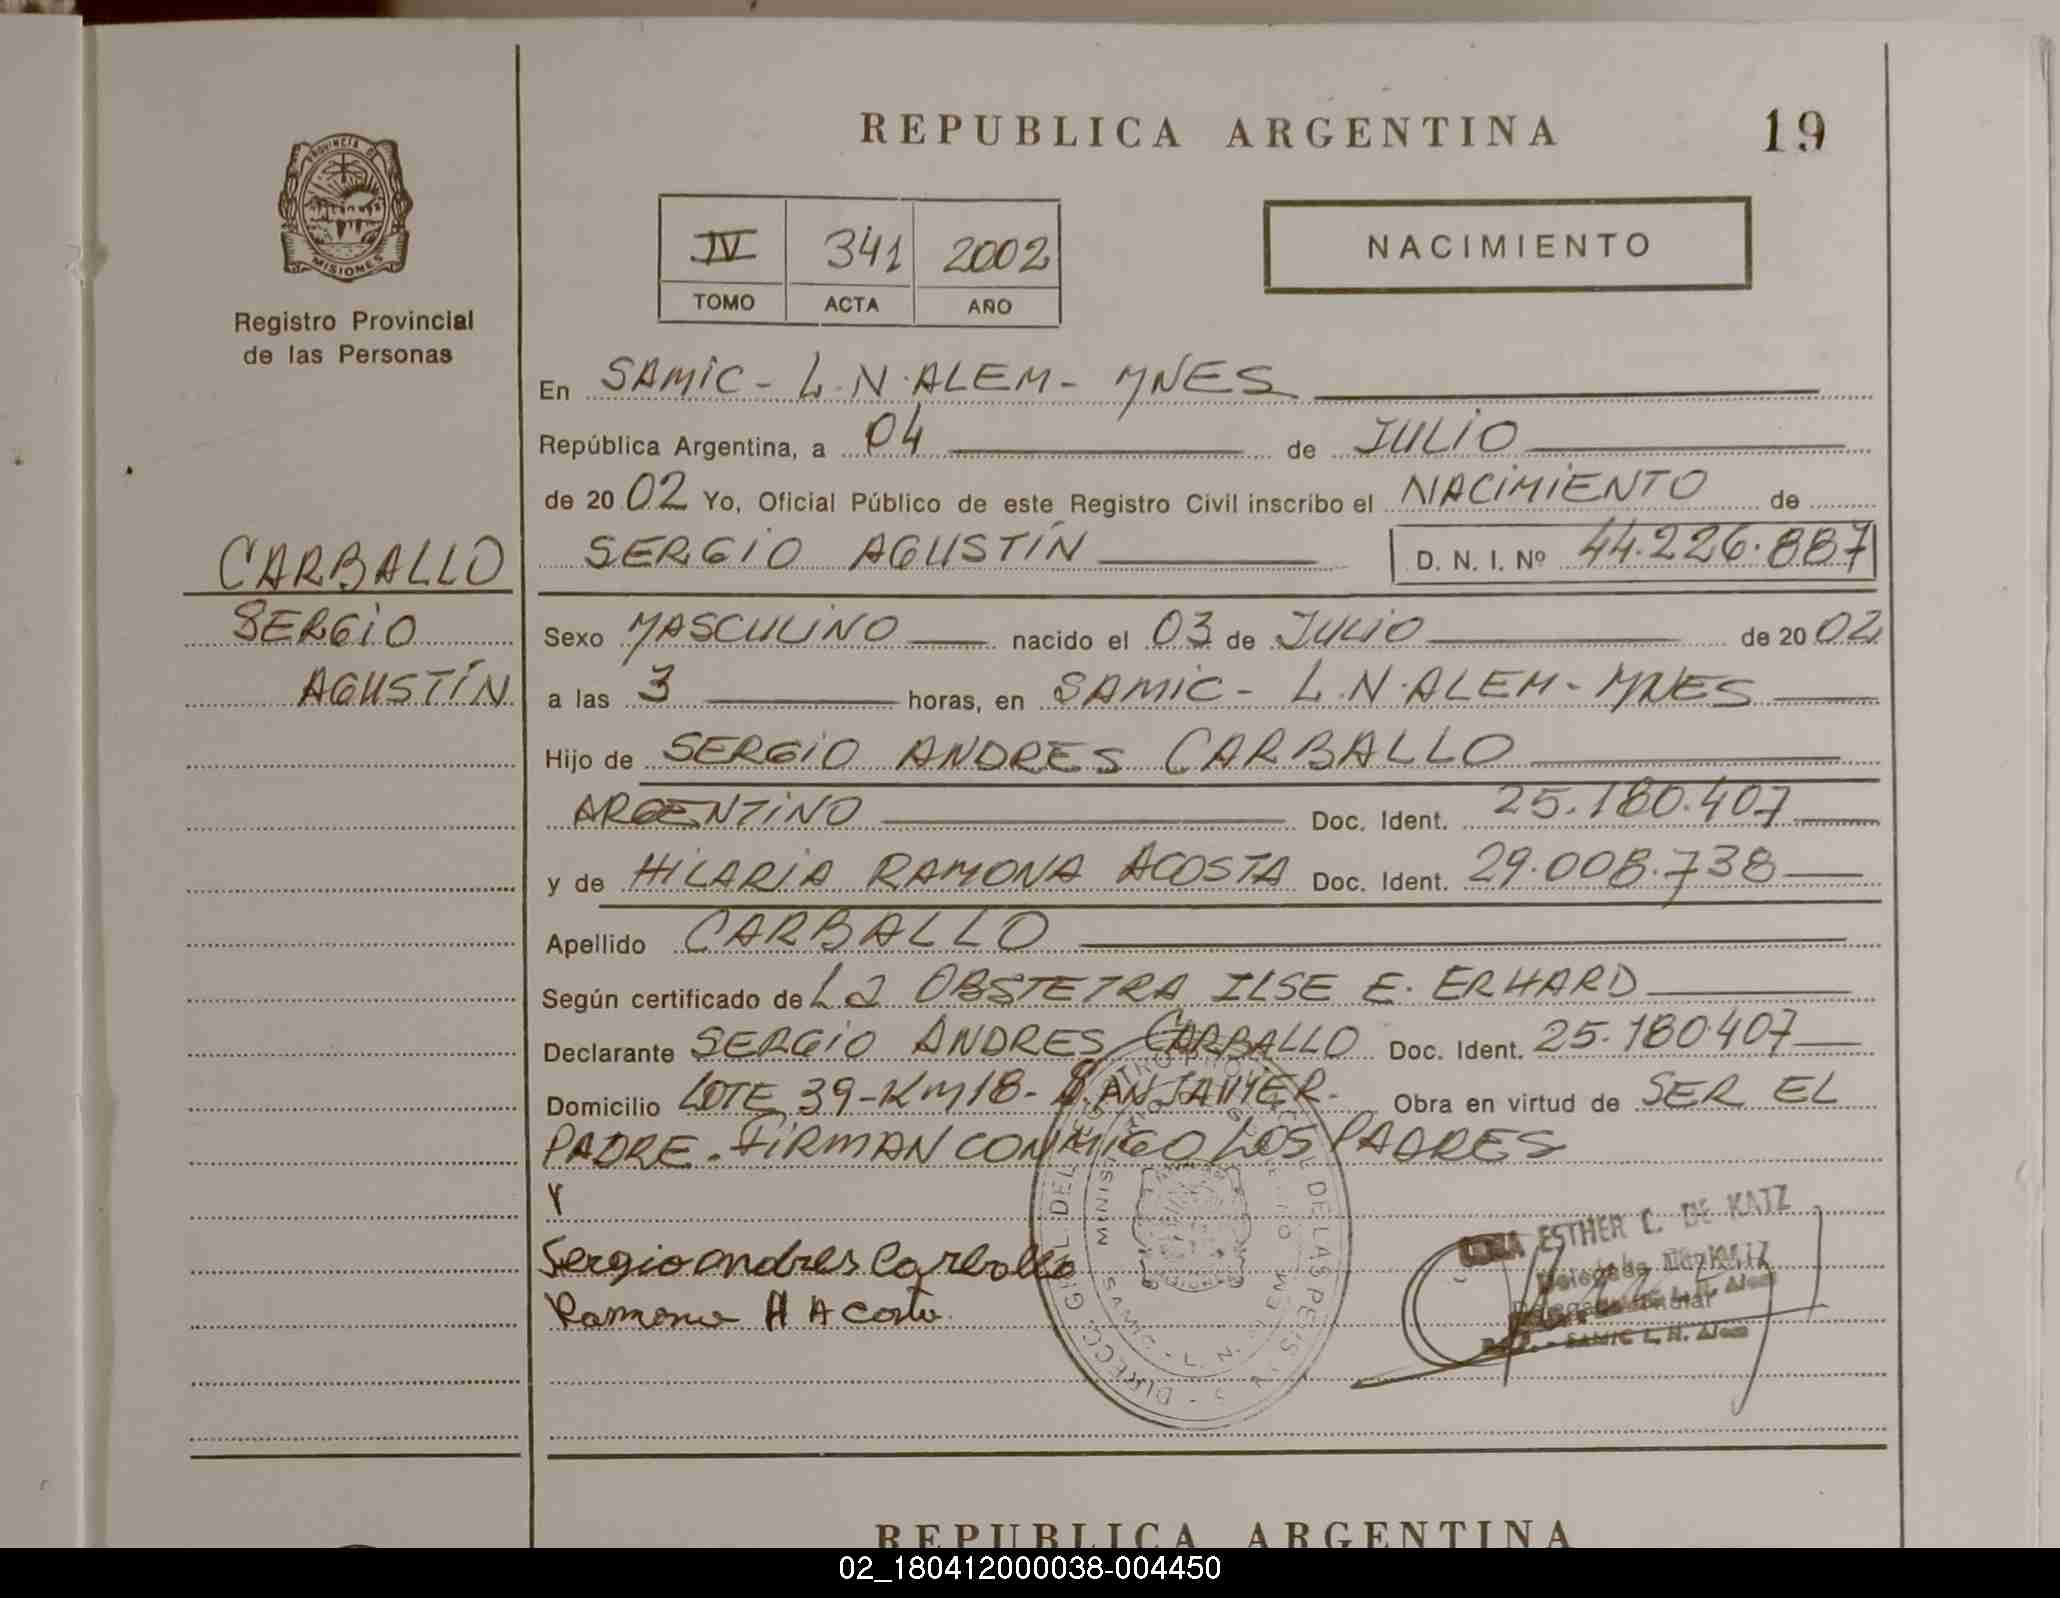 REPUBLICA ARGENTINA
19
PROVINCIA DE
MISIONES
Registro Provincial
de las Personas
IV 341 2002
TOMO ACTA AÑO
NACIMIENTO
En SAMIC - L.N. ALEM - MNES
República Argentina, a 04 de JULIO
de 2002 Yo, Oficial Público de este Registro Civil inscribo el NACIMIENTO de
SERGIO AGUSTÍN D. N. I. Nº 44.226.887
CARBALLO
SERGIO
AGUSTÍN
Sexo MASCULINO nacido el 03 de JULIO de 2002
a las 3 horas, en SAMIC - L.N. ALEM - MNES
Hijo de SERGIO ANDRES CARBALLO
ARGENTINO Doc. Ident. 25.180.407
y de HILARIA RAMONA ACOSTA Doc. Ident. 29.008.738
Apellido CARBALLO
Según certificado de La OBSTETRA ILSE E. ERHARD
Declarante SERGIO ANDRES CARBALLO Doc. Ident. 25.180.407
Domicilio LOTE 39 - KM 18 - SAN JAVIER. Obra en virtud de SER EL
PADRE. FIRMAN CONMIGO LOS PADRES
Y
Sergio andres Carballo
Ramona H Acosta
ESTHER C. DE KATZ
SAMIC L. N. Alem
REPUBLICA ARGENTINA
02_180412000038-004450